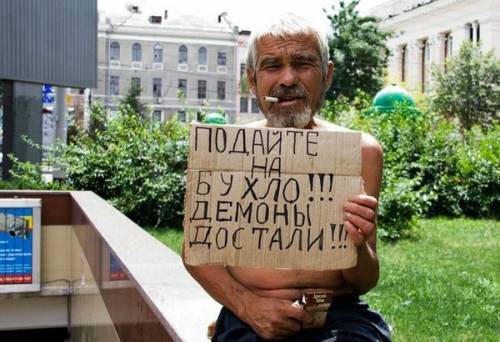 ПОДАЙТЕ
НА
БУХЛО!!!
ДЕМОНЫ
ДОСТАЛИ!!!